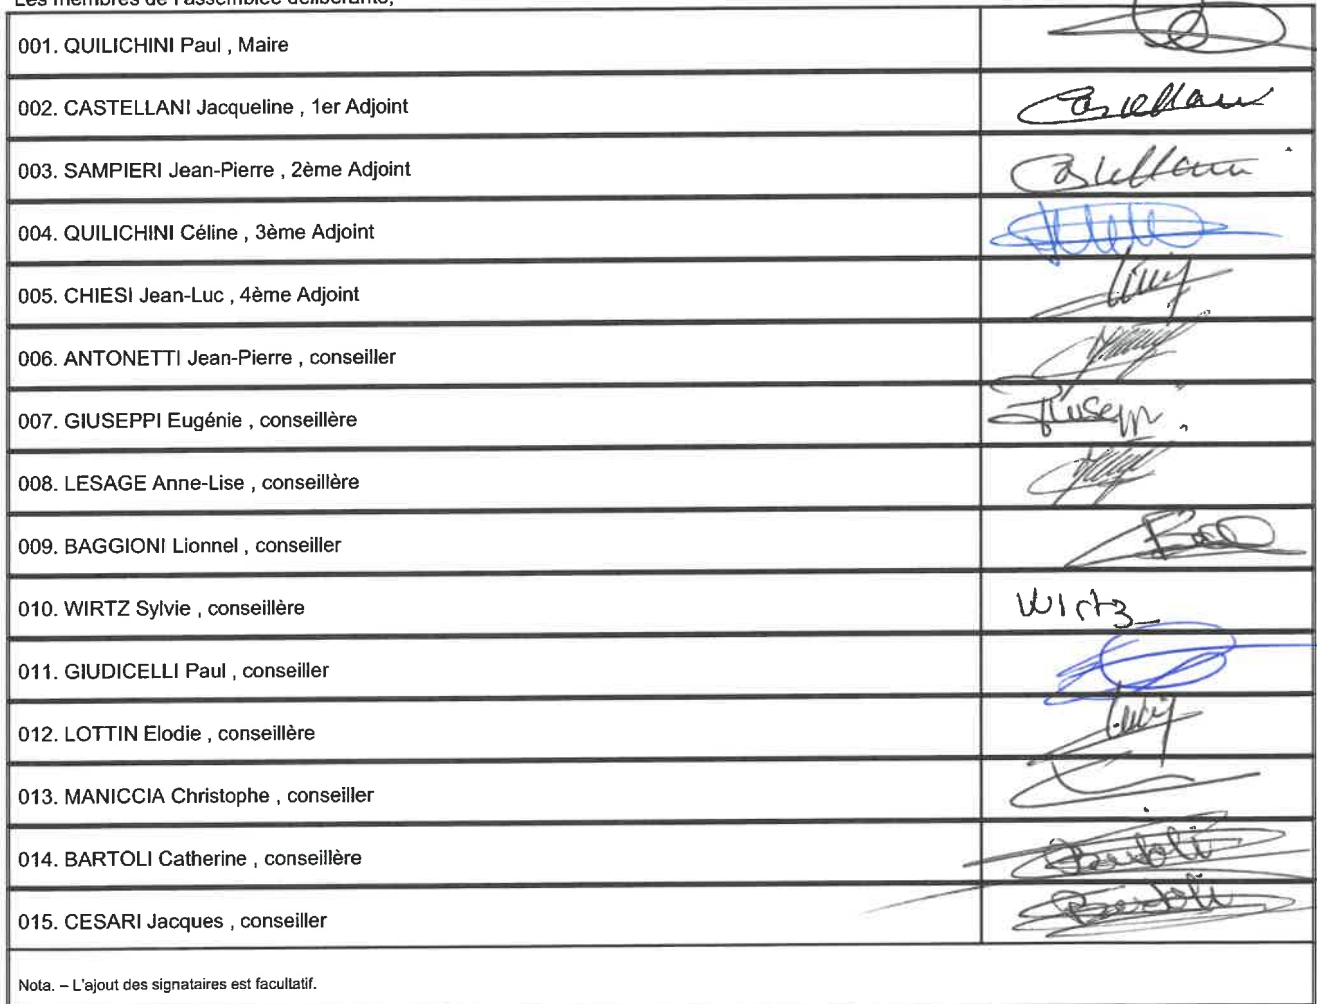 Les membres de l'assemblée délibérante,
001. QUILICHINI Paul , Maire
002. CASTELLANI Jacqueline , 1er Adjoint
Castellani
003. SAMPIERI Jean-Pierre , 2ème Adjoint
Castellani
004. QUILICHINI Céline , 3ème Adjoint
005. CHIESI Jean-Luc , 4ème Adjoint
006. ANTONETTI Jean-Pierre , conseiller
007. GIUSEPPI Eugénie , conseillère
Giuseppi
008. LESAGE Anne-Lise , conseillère
009. BAGGIONI Lionnel , conseiller
010. WIRTZ Sylvie , conseillère
Wirtz
011. GIUDICELLI Paul , conseiller
012. LOTTIN Elodie , conseillère
013. MANICCIA Christophe , conseiller
014. BARTOLI Catherine , conseillère
Bartoli
015. CESARI Jacques , conseiller
Bartoli
Nota. – L'ajout des signataires est facultatif.